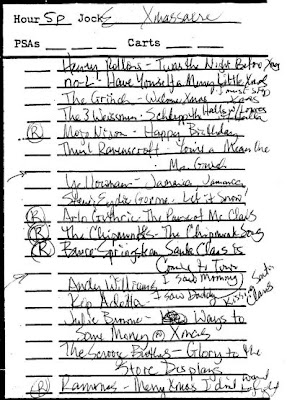 Hour 5p Jock Xmassacre
PSAs Carts
Henry Rollins - Twas the Night Before Xmas
no-L - Have Yourself a Merry Little Xmas
The Grinch - Welcome Xmas
The 3 Weissmen - Schlepp the Halls w/ Loaves of Challah
(R) Mojo Nixon - Happy Birthday
Thurl Ravenscroft - You're a Mean One
Mr. Grinch
Yellowman - Jamaica Jamaica
Steve & Eydie Gorme - Let it Snow
(R) Arlo Guthrie - The Pause of Mr. Claus
(R) The Chipmunks - The Chipmunk Song
(R) Bruce Springsteen Santa Claus is
Coming to Town
Andy Williams I saw Mommy
Kip Adotta - I saw Daddy Kissing Santa Claus
Julie Brown - Ways to
Save Money @ Xmas
The Scrooge Brothers - Glory to the
Store Displays
(R) Ramones - Merry Xmas I don't want to fight